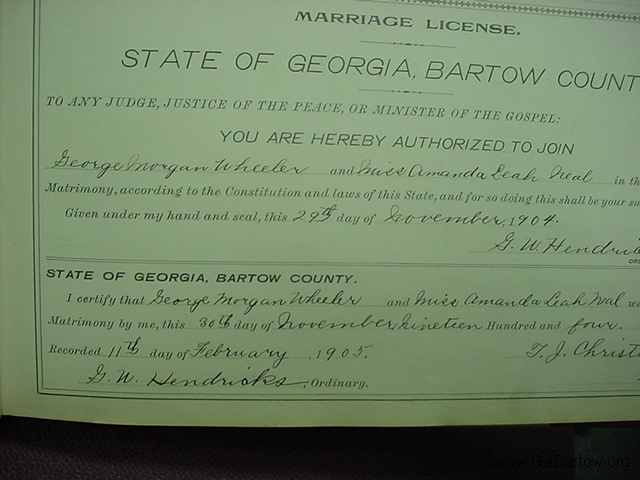 MARRIAGE LICENSE.
STATE OF GEORGIA, BARTOW COUNT
TO ANY JUDGE, JUSTICE OF THE PEACE, OR MINISTER OF THE GOSPEL:
YOU ARE HEREBY AUTHORIZED TO JOIN
George Morgan Wheeler and Miss Amanda Leah Neal in th
Matrimony, according to the Constitution and laws of this State, and for so doing this shall be your su
Given under my hand and seal, this 29th day of November, 1904.
G. W. Hendrick
ORD
STATE OF GEORGIA, BARTOW COUNTY.
I certify that George Morgan Wheeler and Miss Amanda Leah Neal we
Matrimony by me, this 30th day of November, Nineteen Hundred and four.
Recorded 11th day of February, 1905. T. J. Christ
G. W. Hendricks, Ordinary.
©www.GaBartow.org